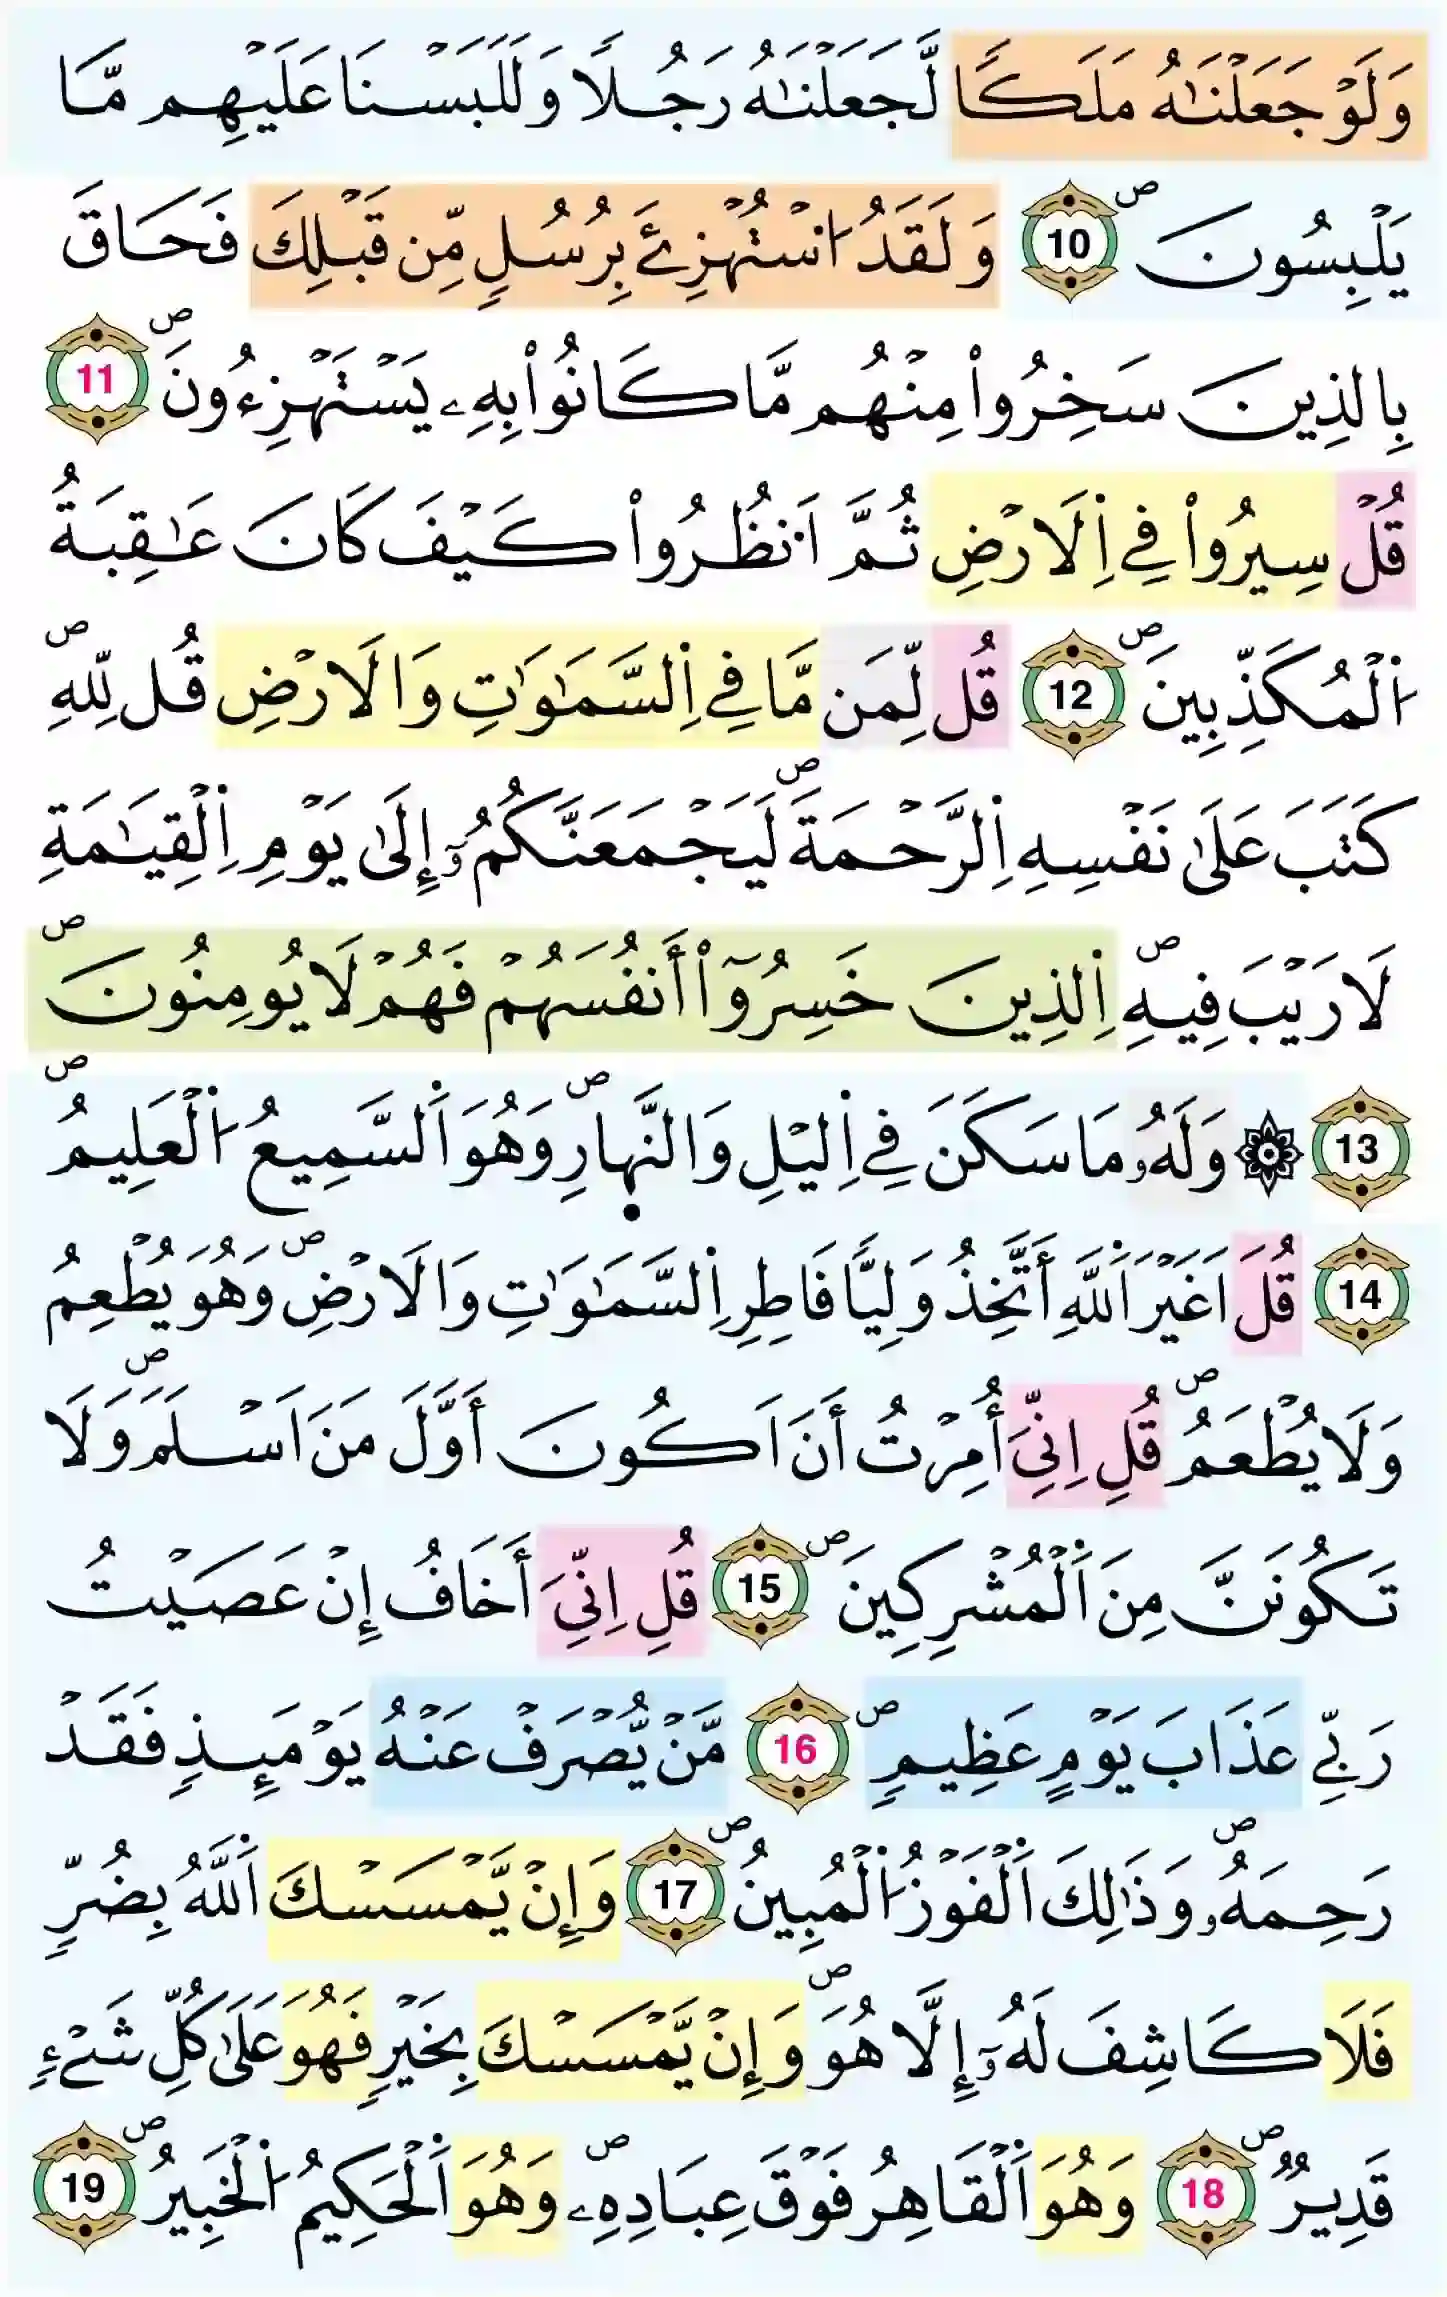 وَلَوْ جَعَلْنَٰهُ مَلَكًا لَّجَعَلْنَٰهُ رَجُلًا وَلَلَبَسْنَا عَلَيْهِم مَّا
يَلْبِسُونَ ص 10 وَلَقَدُ اسْتُهْزِئَ بِرُسُلٍ مِّن قَبْلِكَ فَحَاقَ
بِالذِينَ سَخِرُواْ مِنْهُم مَّا كَانُواْ بِهِۦ يَسْتَهْزِءُونَ ص 11
قُلْ سِيرُواْ فِے اِلَارْضِ ثُمَّ اَنظُرُواْ كَيْفَ كَانَ عَٰقِبَةُ
اُ۬لْمُكَذِّبِينَ ص 12 قُل لِّمَن مَّا فِے اِ۬لسَّمَٰوَٰتِ وَالَارْضِ قُل لِلهِ ص
كَتَبَ عَلَىٰ نَفْسِهِ اِ۬لرَّحْمَةَ ص لَيَجْمَعَنَّكُمُۥٓ إِلَىٰ يَوْمِ اِ۬لْقِيَٰمَةِ
لَا رَيْبَ فِيهِ ص اِ۬لذِينَ خَسِرُوٓاْ أَنفُسَهُمْ فَهُمْ لَا يُومِنُونَ ص
13 ۞ وَلَهُۥ مَا سَكَنَ فِے اِ۬ليْلِ وَالنَّهارِ ص وَهُوَ اَ۬لسَّمِيعُ اُ۬لْعَلِيمُ ص
14 قُلَ اَغَيْرَ اَ۬للَّهِ أَتَّخِذُ وَلِيّاً فَاطِرِ اِ۬لسَّمَٰوَٰتِ وَالَارْضِ ص وَهُوَ يُطْعِمُ
وَلَا يُطْعَمُ ص قُلِ اِنِّيَ أُمِرْتُ أَنَ اَكُونَ أَوَّلَ مَنَ اَسْلَمَ ص وَلَا
تَكُونَنَّ مِنَ اَ۬لْمُشْرِكِينَ ص 15 قُلِ اِنِّيَ أَخَافُ إِنْ عَصَيْتُ
رَبِّے عَذَابَ يَوْمٍ عَظِيمٍ ص 16 مَّنْ يُّصْرَفْ عَنْهُ يَوْمَئِذٍ فَقَدْ
رَحِمَهُۥ ص وَذَٰلِكَ اَ۬لْفَوْزُ اُ۬لْمُبِينُ ص 17 وَإِنْ يَّمْسَسْكَ اَ۬للَّهُ بِضُرٍّ
فَلَا كَاشِفَ لَهُۥٓ إِلَّا هُوَ ص وَإِنْ يَّمْسَسْكَ بِخَيْرٍ فَهُوَ عَلَىٰ كُلِّ شَےْءٍ
قَدِيرٌ ص 18 وَهُوَ اَ۬لْقَاهِرُ فَوْقَ عِبَادِهِۦ ص وَهُوَ اَ۬لْحَكِيمُ اُ۬لْخَبِيرُ ص 19